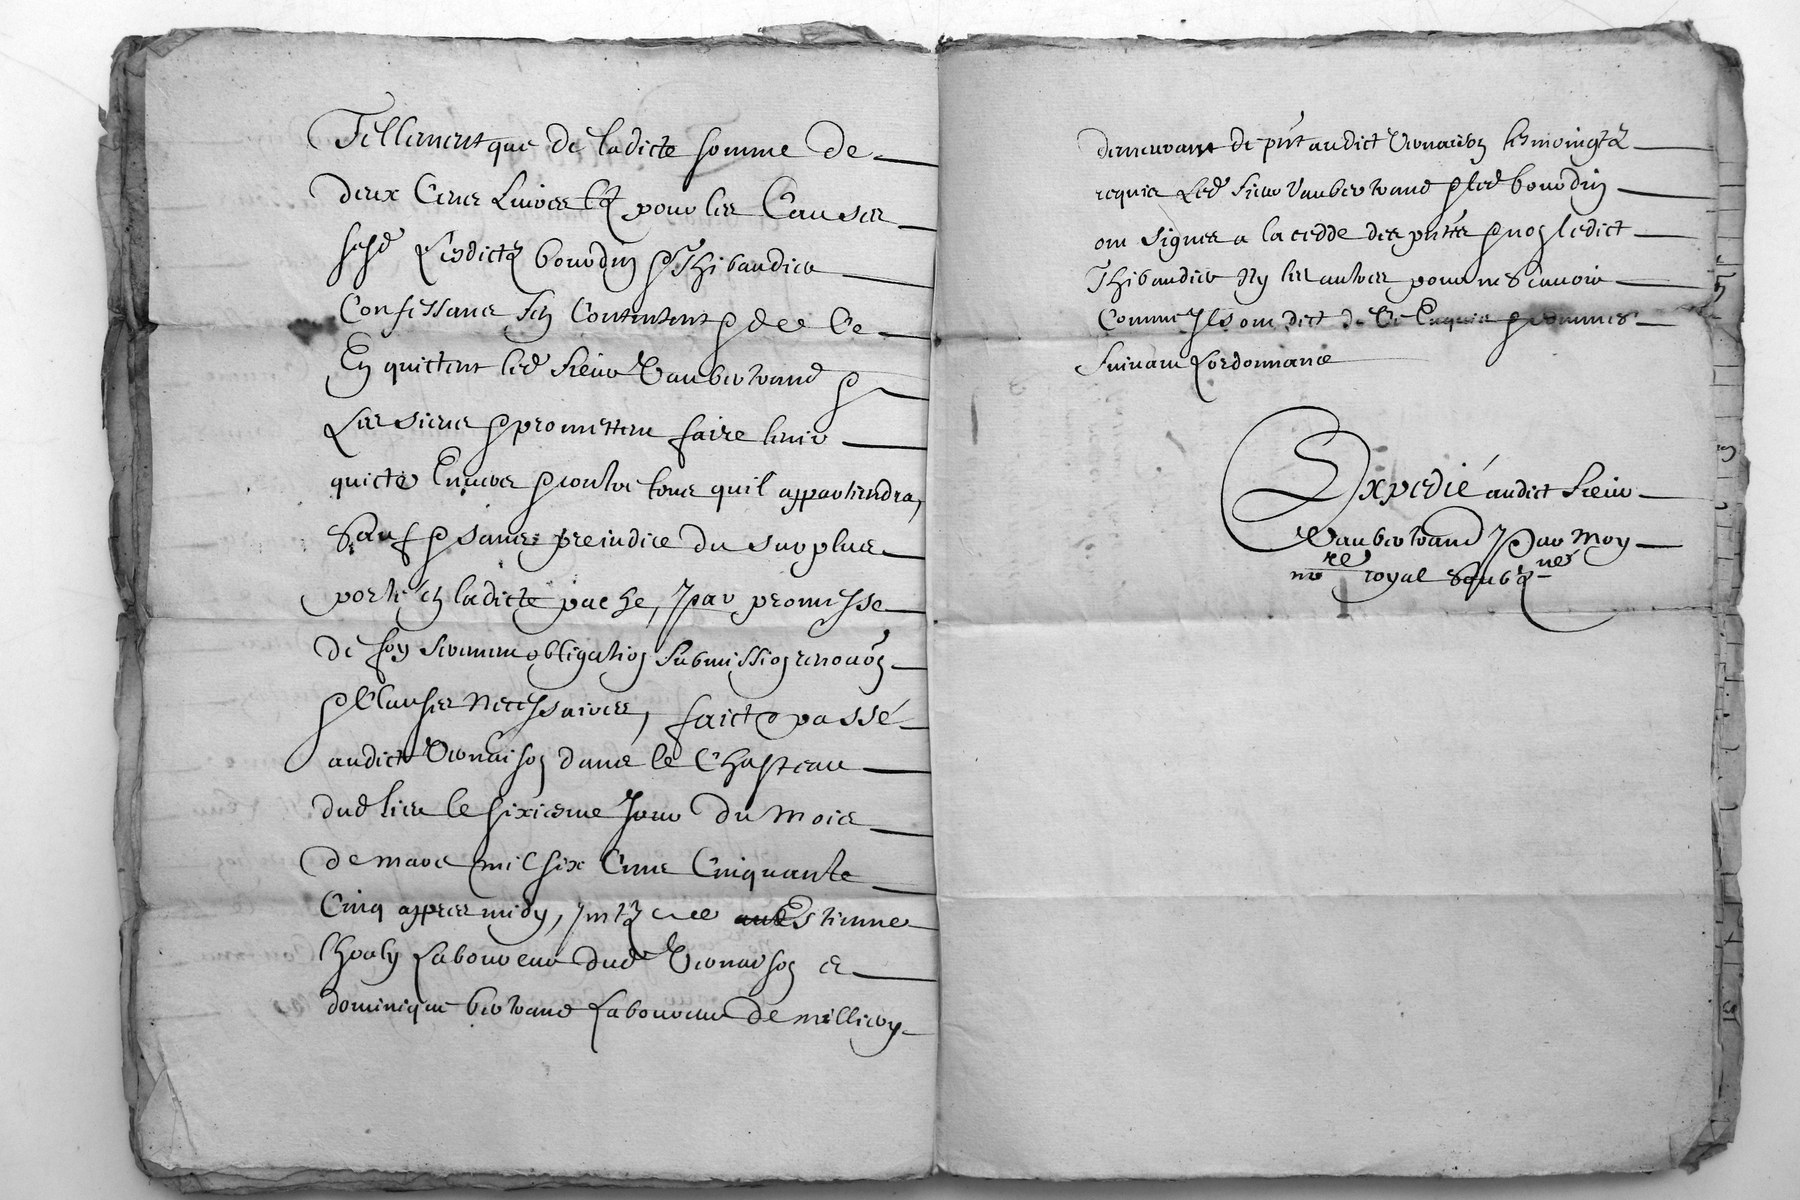 Tellement que de ladicte somme de
deux Cens Livres tz pour les Causes
susd Lesdictz bourdin et Thibaudier
Confessans s'en Contentent et de Ce
En quittent led Sieur Vaubertrand et
Les siens et promettent faire tenir
quicte Envers et contre tous quil appartiendra,
Sauf et sans preiudice du surplus
porté en ladicte pache, par promesse
de foy serment obligation submission renonõn
et Clauses Necessaires, faict et passé
audict Vernaison dans le Chasteau
dud lieu le sixiesme Jour du Mois
de mars mil six Cens Cinquante
Cinq appres midy, Estienne
Laboureur dud Vernaison et
dominique bertrand Laboureur de millery
demeurant de pnt audict Vernaison tesmoingtz
requis Led Sieur Vaubertrand et led bourdin
ont Signes a la cedde des pntes et non ledict
Thibaudier Ny les autres pour ne Scavoir
Comme Ils ont dict de Ce Enquis et sommes
Suivant Lordonnance
Expedié audict Sieur
Vaubertrand Par Moy
nore royal Soubzne